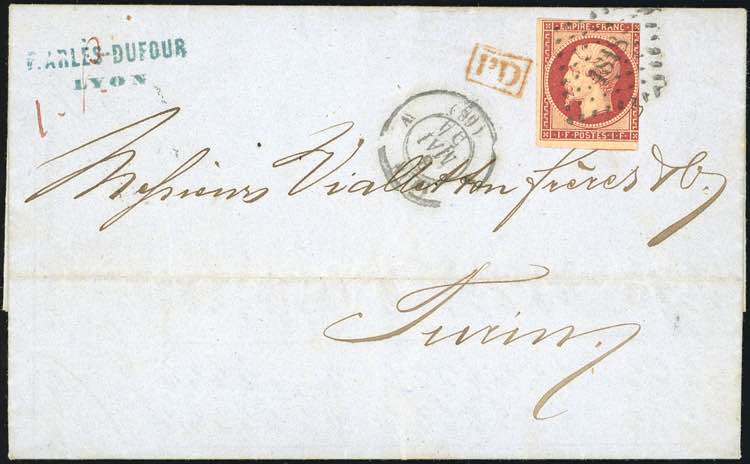 F. ARLÈS-DUFOUR
LYON
PD
EMPIRE FRANC
1·F·POSTES·1·F
MAI
(68)
Messieurs Vialletton frères & Cie
Turin